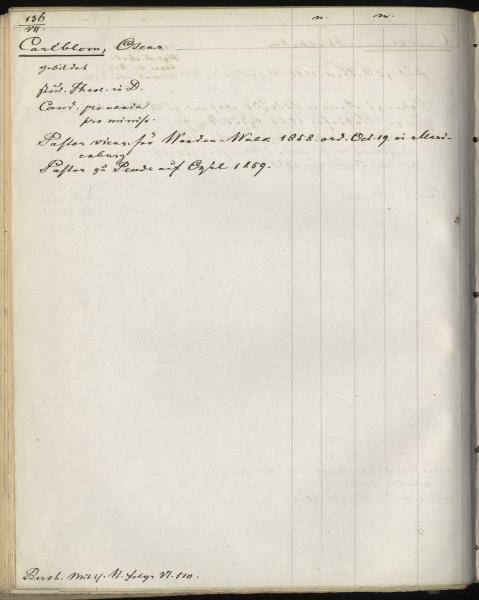 136
VII.
n. m.
Carlblom, Oscar
gebildet
stud. Theol. in D.
Cand. pro venia
pro minist.
Pastor vicar. für Wenden-Walk 1858. ord. Oct. 19. in Mari-
enburg
Pastor zu Peude auf Oesel 1859.
Berkh. Mitth. N. folge VI. 510.